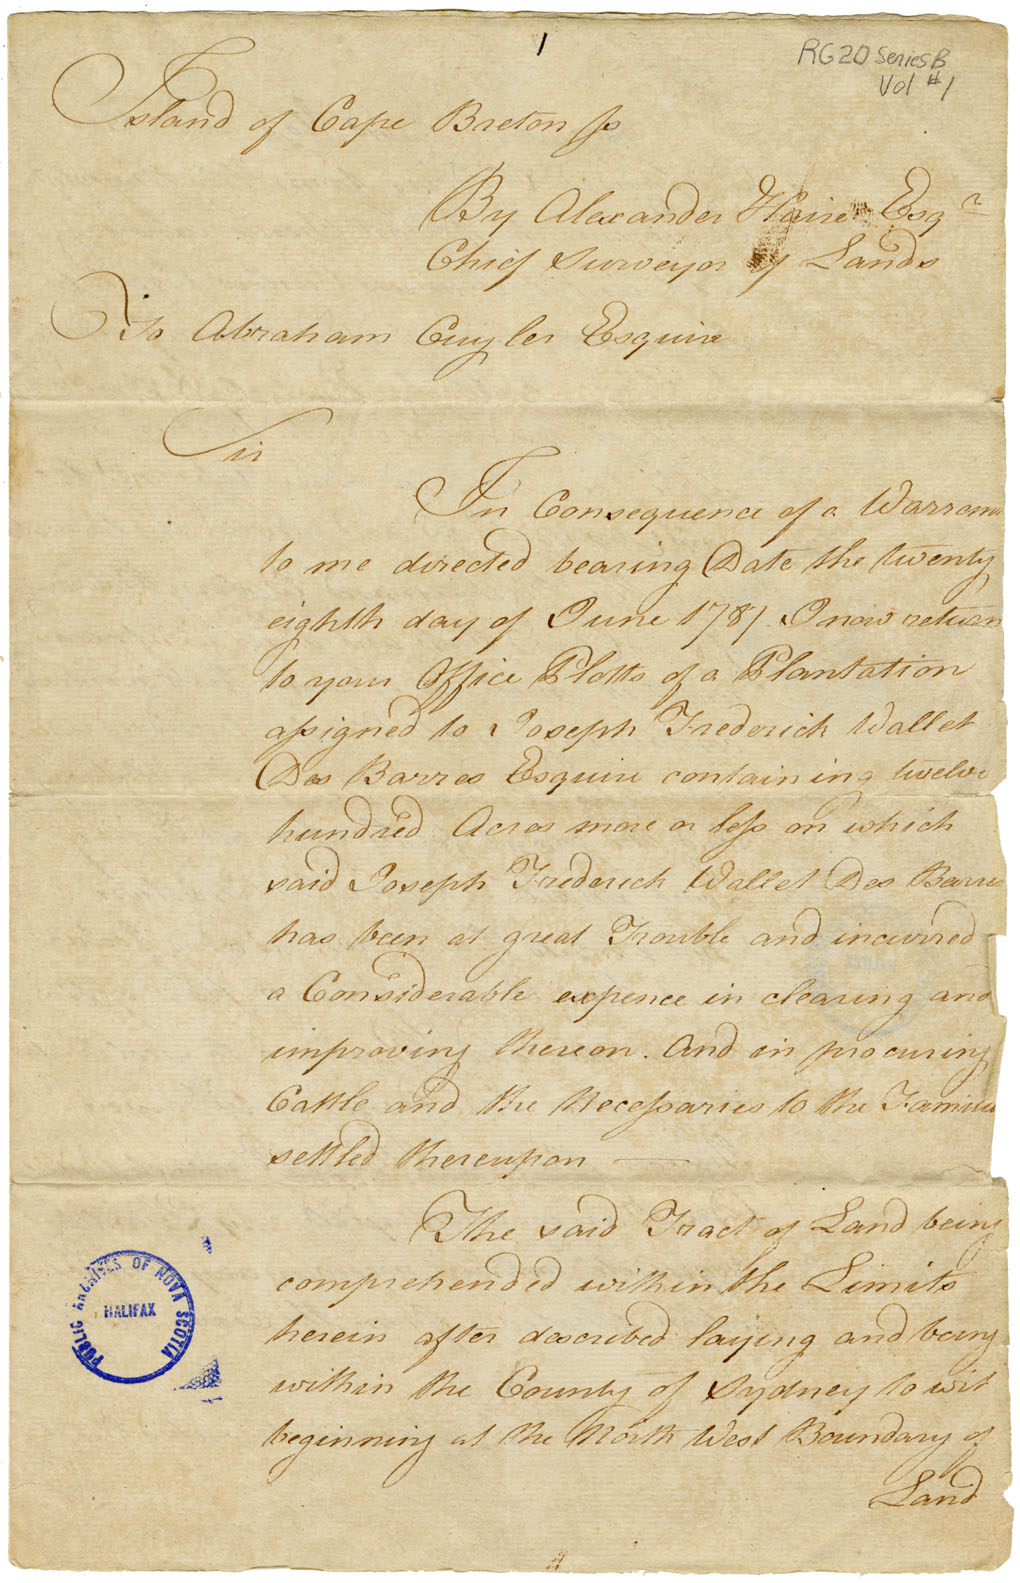 1
RG20 Series B
Vol #1
Island of Cape Breton ſs
By Alexander Haire Esqr
Chief Surveyor of Lands
To Abraham Cuyler Esquire
Sir
In Consequence of a Warran
to me directed bearing Date the twenty
eighth day of June 1787 I now return
to your Office Plotts of a Plantation
aſsigned to Joseph Frederick Wallet
Des Barres Esquire containing twelve
hundred Acres more or leſs on which
said Joseph Frederick Wallet Des Barres
has been at great Trouble and incurred
a Considerable expence in clearing and
improving thereon. And in procuring
Cattle and the Neceſsaries to the Familes
settled thereupon —
The said Tract of Land being
comprehended within the Limits
herein after described laying and being
within the County of Sydney to wit
beginning at the North West Boundary of
Land
PUBLIC ARCHIVES OF NOVA SCOTIA
HALIFAX